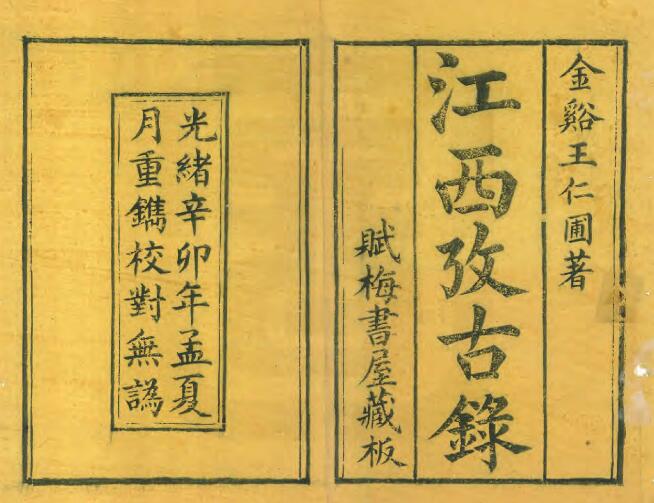 金谿王仁圃著
江西攷古錄
賦梅書屋藏板
光緒辛卯年孟夏
月重鐫校對無譌